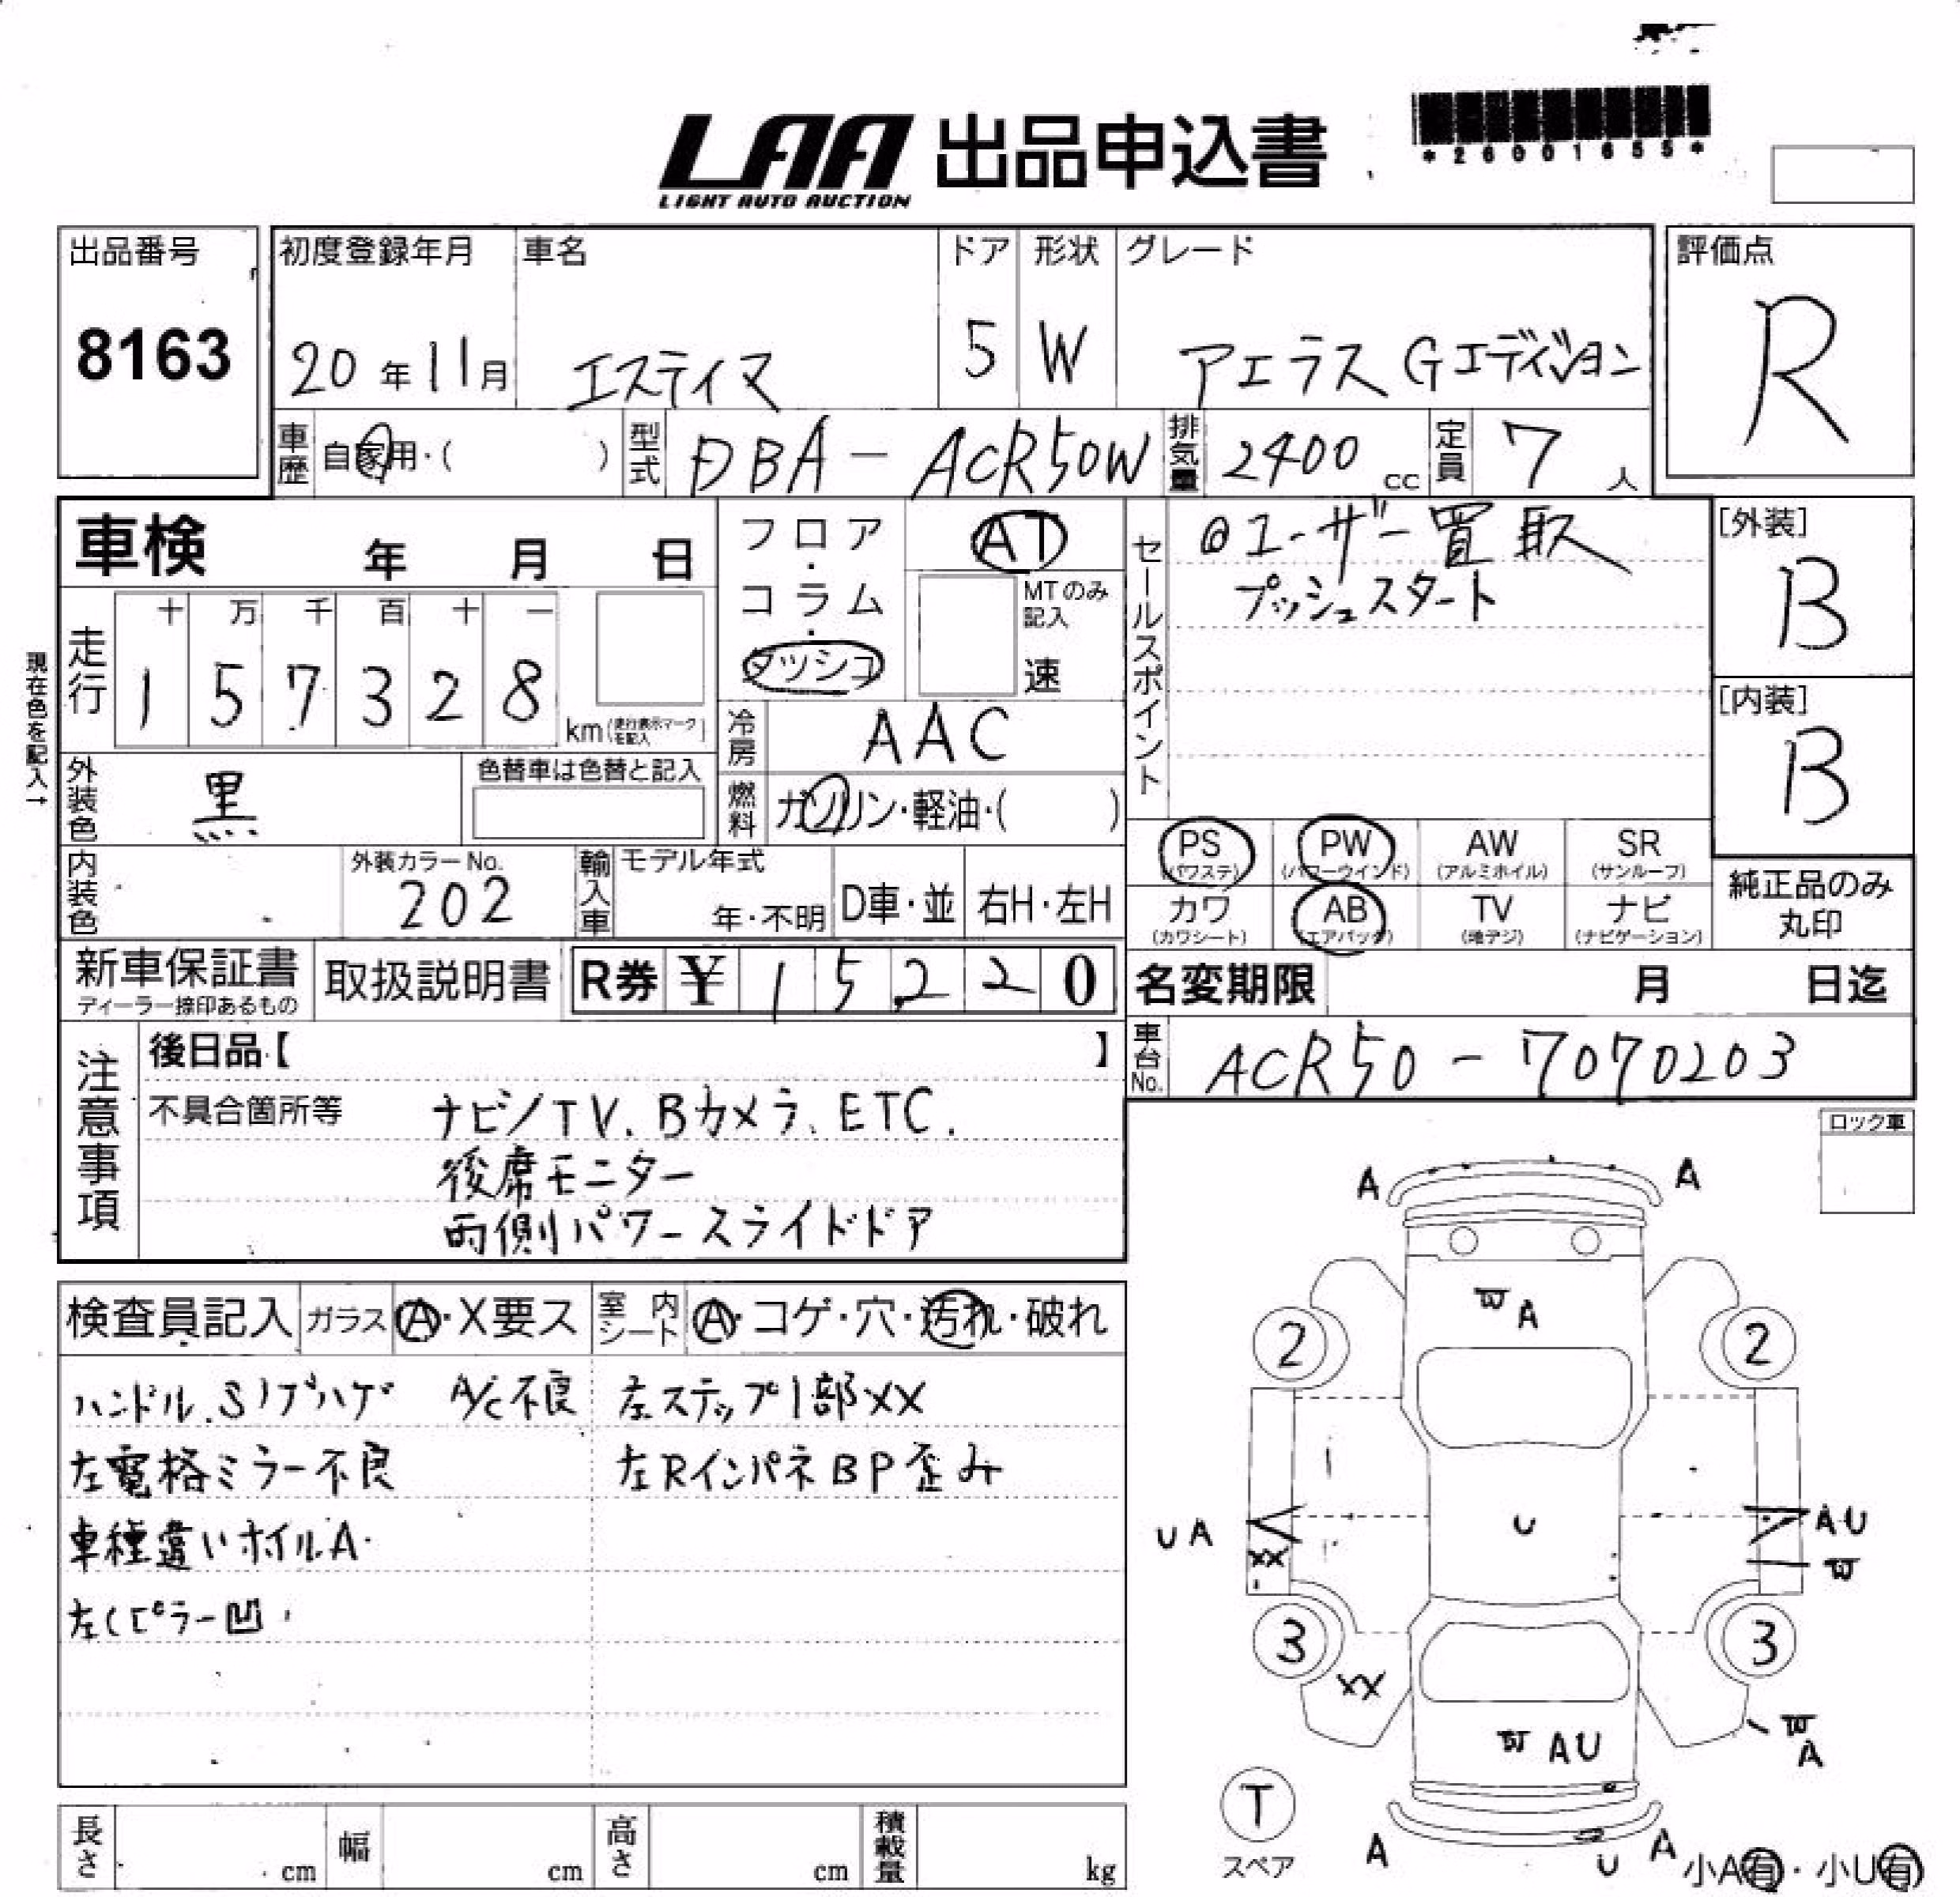 LAA 出品申込書
LIGHT AUTO AUCTION
*26001655*
出品番号
8163
初度登録年月
20年11月
車名
エスティマ
ドア
5
形状
W
グレード
アエラス Gエディション
評価点
R
車歴
自家用・( )
型式
DBA-ACR50W
排気量
2400 cc
定員
7人
車検 年 月 日
フロア・コラム・ダッシュ
AT
MTのみ記入
速
セールスポイント
@ユーザー買取
プッシュスタート
[外装]
B
[内装]
B
現在色を記入→
走行
十 万 千 百 十 一
1 5 7 3 2 8
km(走行表示マークを記入)
冷房
AAC
外装色
黒
色替車は色替と記入
燃料
ガソリン・軽油・( )
PS (パワステ)
PW (パワーウインド)
AW (アルミホイル)
SR (サンルーフ)
カワ (カワシート)
AB (エアバッグ)
TV (地デジ)
ナビ (ナビゲーション)
純正品のみ丸印
内装色
外装カラーNo.
202
輸入車
モデル年式
年・不明
D車・並
右H・左H
新車保証書
ディーラー捺印あるもの
取扱説明書
R券 ¥ 1 5 2 2 0
名変期限 月 日迄
車台No.
ACR50-7070203
注意事項
後日品【 】
不具合箇所等
ナビ/TV、Bカメラ、ETC.
後席モニター
両側パワースライドドア
ロック車
検査員記入
ガラス
A・X要ス
室内シート
A・コゲ・穴・汚れ・破れ
ハンドル、Sノブハゲ A/C不良
左電格ミラー不良
車種違いホイルA
左Cピラー凹
左ステップ1部XX
左RインパネBP歪み
A A
A
2 2
U A
XX
U
AU
3 3
XX
AU
A
T
スペア
A
U
A
小A有・小U有
長さ cm
幅 cm
高さ cm
積載量 kg